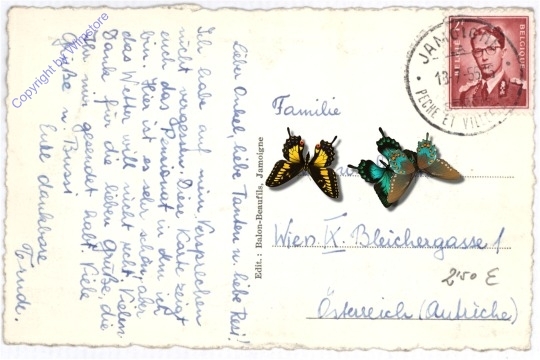 Liebe Onkel, liebe Tanten u liebe Resi!
Ich habe auf mein Versprechen
nicht vergessen. Diese Karte zeigt
euch das Pensionat in dem ich
bin. Hier ist es sehr schön, aber
das Wetter will nicht recht. Vielen
Dank für die lieben Grüße, die
Ihr mir gesendet habt. Viele
Grüße u. Bussi
Eure dankbare
Trude.
Edit.: Balon-Beaufils, Jamoigne
Familie
Wien IX. Bleichergasse 1
Österreich (Autriche)
2'50 E
BELGIE BELGIQUE
JAMOIGNE
PECHE ET
Copyright by Wimstore